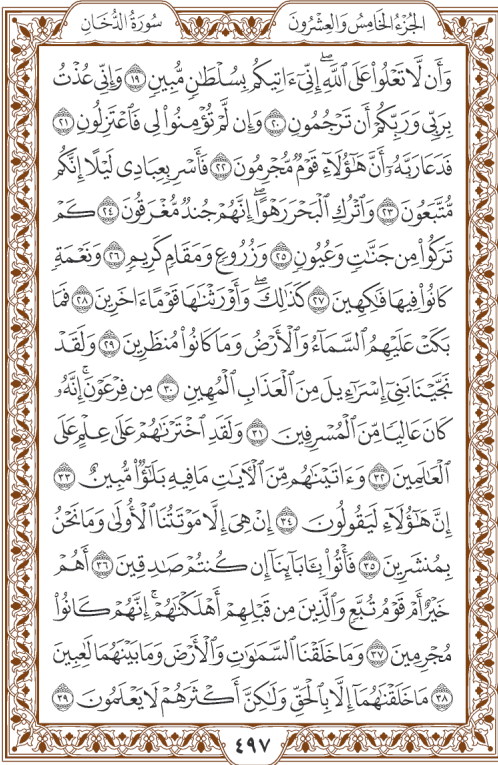 الجُزْءُ الخَامِسُ وَالعِشْرُونَ سُورَةُ الدُّخَانِ
وَأَن لَّا تَعْلُوا۟ عَلَى ٱللَّهِ ۖ إِنِّىٓ ءَاتِيكُم بِسُلْطَٰنٍ مُّبِينٍ ١٩ وَإِنِّى عُذْتُ
بِرَبِّى وَرَبِّكُمْ أَن تَرْجُمُونِ ٢٠ وَإِن لَّمْ تُؤْمِنُوا۟ لِى فَٱعْتَزِلُونِ ٢١
فَدَعَا رَبَّهُۥٓ أَنَّ هَٰٓؤُلَآءِ قَوْمٌ مُّجْرِمُونَ ٢٢ فَأَسْرِ بِعِبَادِى لَيْلًا إِنَّكُم
مُّتَّبَعُونَ ٢٣ وَٱتْرُكِ ٱلْبَحْرَ رَهْوًا ۖ إِنَّهُمْ جُندٌ مُّغْرَقُونَ ٢٤ كَمْ
تَرَكُوا۟ مِن جَنَّٰتٍ وَعُيُونٍ ٢٥ وَزُرُوعٍ وَمَقَامٍ كَرِيمٍ ٢٦ وَنَعْمَةٍ
كَانُوا۟ فِيهَا فَٰكِهِينَ ٢٧ كَذَٰلِكَ ۖ وَأَوْرَثْنَٰهَا قَوْمًا ءَاخَرِينَ ٢٨ فَمَا
بَكَتْ عَلَيْهِمُ ٱلسَّمَآءُ وَٱلْأَرْضُ وَمَا كَانُوا۟ مُنظَرِينَ ٢٩ وَلَقَدْ
نَجَّيْنَا بَنِىٓ إِسْرَٰٓءِيلَ مِنَ ٱلْعَذَابِ ٱلْمُهِينِ ٣٠ مِن فِرْعَوْنَ ۚ إِنَّهُۥ
كَانَ عَالِيًا مِّنَ ٱلْمُسْرِفِينَ ٣١ وَلَقَدِ ٱخْتَرْنَٰهُمْ عَلَىٰ عِلْمٍ عَلَى
ٱلْعَٰلَمِينَ ٣٢ وَءَاتَيْنَٰهُم مِّنَ ٱلْءَايَٰتِ مَا فِيهِ بَلَٰٓؤٌا۟ مُّبِينٌ ٣٣
إِنَّ هَٰٓؤُلَآءِ لَيَقُولُونَ ٣٤ إِنْ هِىَ إِلَّا مَوْتَتُنَا ٱلْأُولَىٰ وَمَا نَحْنُ
بِمُنشَرِينَ ٣٥ فَأْتُوا۟ بِـَٔابَآئِنَآ إِن كُنتُمْ صَٰدِقِينَ ٣٦ أَهُمْ
خَيْرٌ أَمْ قَوْمُ تُبَّعٍ وَٱلَّذِينَ مِن قَبْلِهِمْ ۚ أَهْلَكْنَٰهُمْ ۖ إِنَّهُمْ كَانُوا۟
مُجْرِمِينَ ٣٧ وَمَا خَلَقْنَا ٱلسَّمَٰوَٰتِ وَٱلْأَرْضَ وَمَا بَيْنَهُمَا لَٰعِبِينَ
٣٨ مَا خَلَقْنَٰهُمَآ إِلَّا بِٱلْحَقِّ وَلَٰكِنَّ أَكْثَرَهُمْ لَا يَعْلَمُونَ ٣٩
٤٩٧